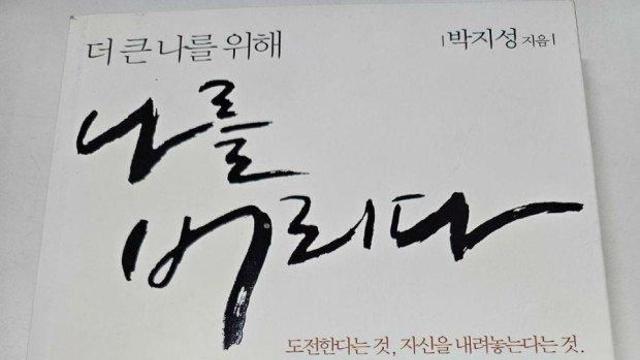 더 큰 나를 위해
|박지성 지음|
나를
버리다
도전한다는 것, 자신을 내려놓는다는 것.